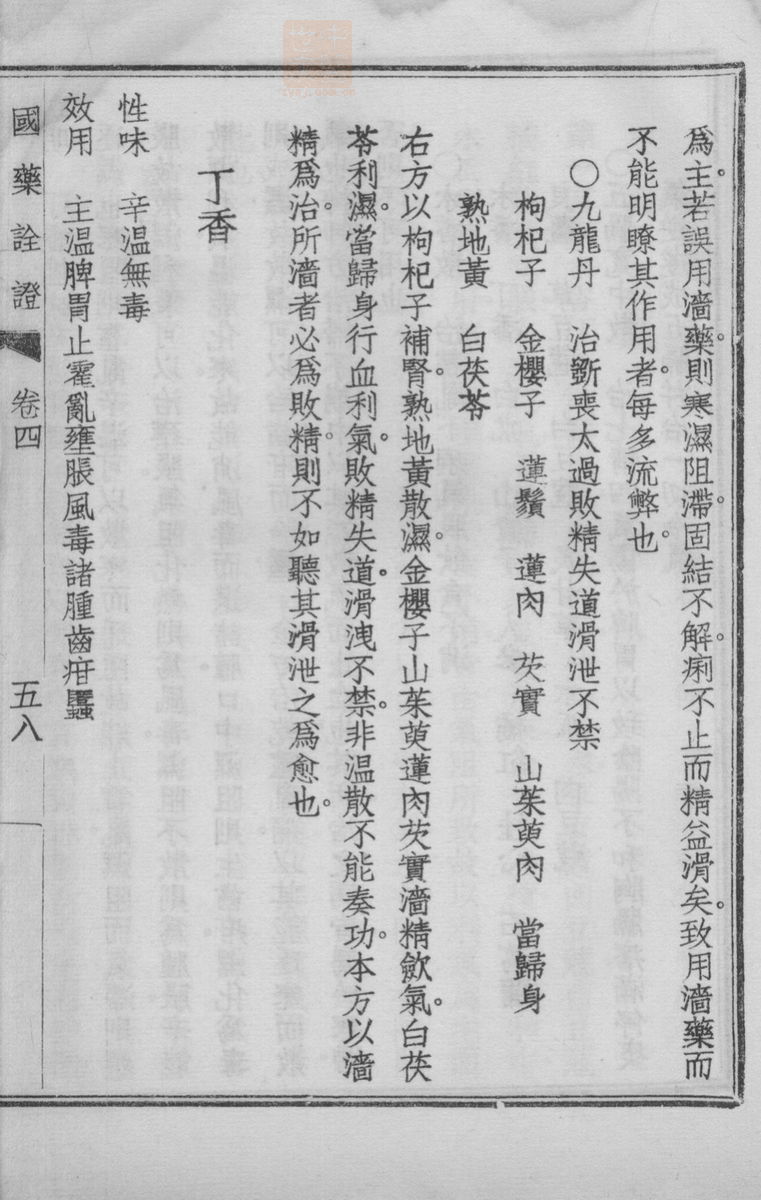 爲主。若誤用濇藥。則寒濕阻滯。固結不解。痢不止而精益滑矣。致用濇藥而
不能明瞭其作用者。每多流弊也。
〇九龍丹　治斲喪太過敗精失道滑泄不禁
枸杞子　金櫻子　蓮鬚　蓮肉　芡實　山茱萸肉　當歸身
熟地黃　白茯苓
右方以枸杞子補腎。熟地黃散濕。金櫻子山茱萸蓮肉芡實濇精歛氣。白茯
苓利濕。當歸身行血利氣。敗精失道。滑洩不禁。非温散不能奏功。本方以濇
精爲治。所濇者必爲敗精。則不如聽其滑泄之爲愈也。
丁香
性味　辛温無毒
效用　主温脾胃止霍亂壅脹風毒諸腫齒疳䘌
國藥詮證　卷四　五八